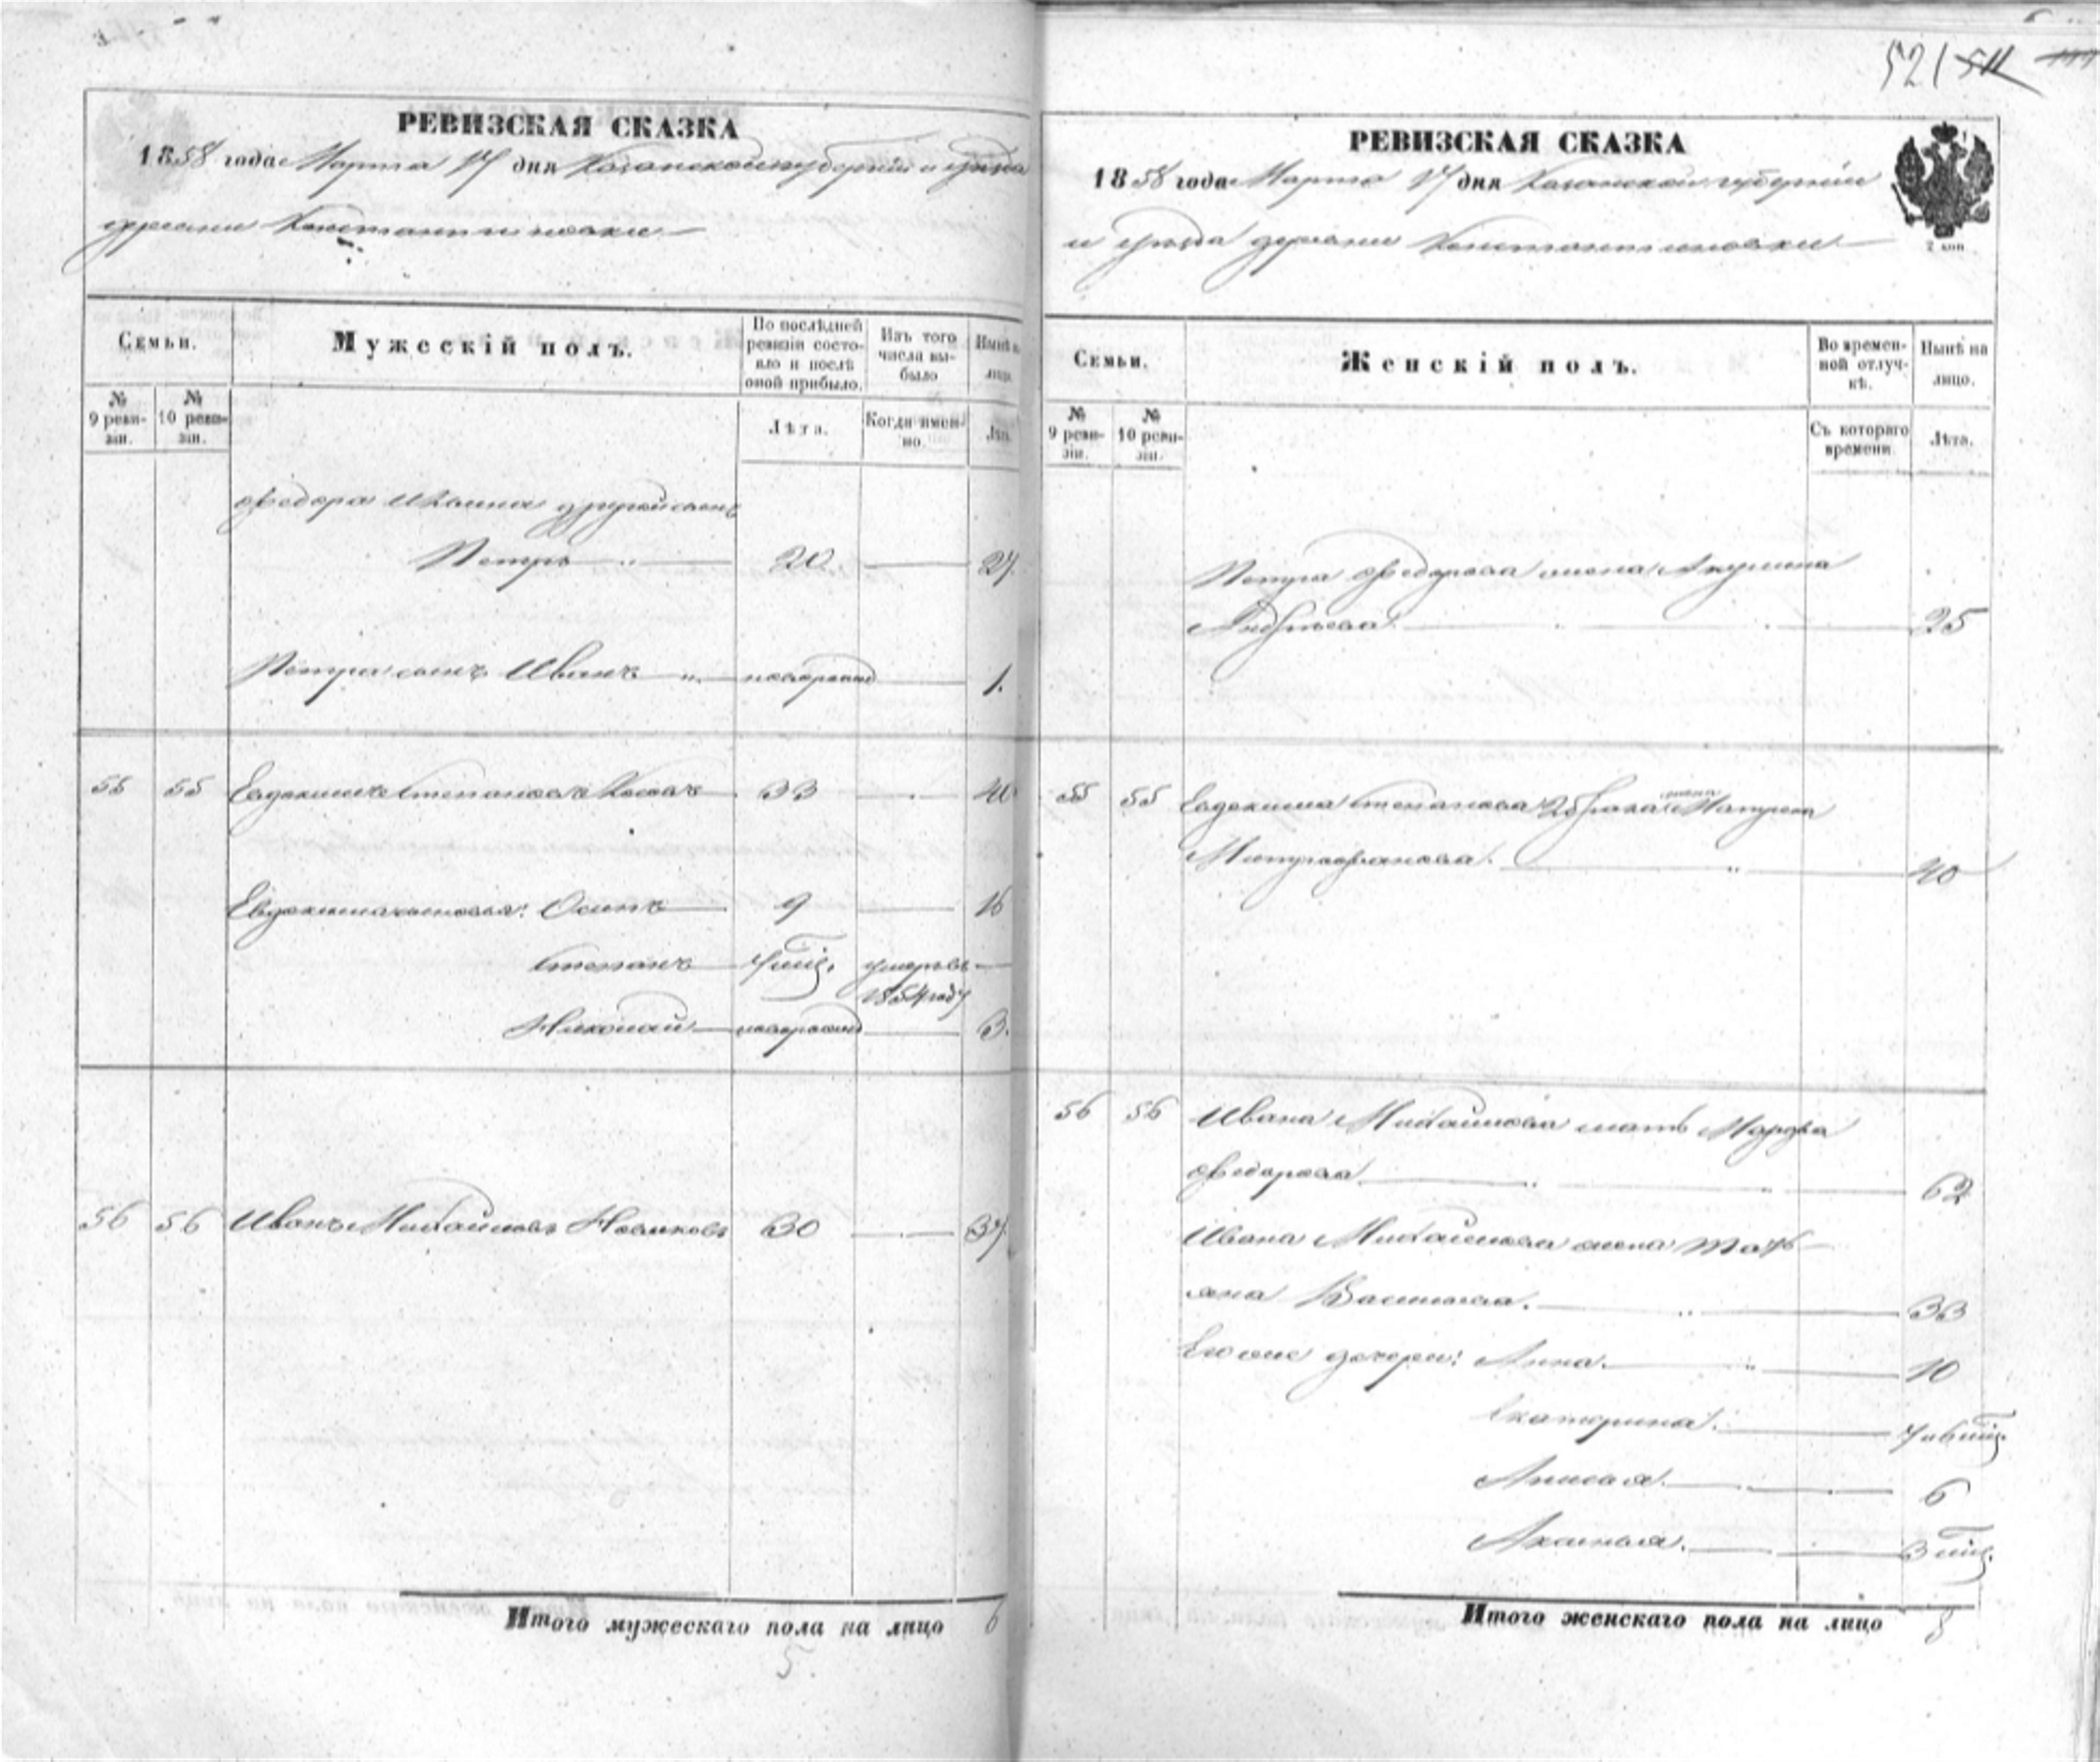 521 511
РЕВИЗСКАЯ СКАЗКА
1858 года Марта 17 дня Казанской губернии и уезда
деревни Константиновки
Семьи.
Мужескій полъ.
По послѣдней ревизіи состояло и послѣ оной прибыло.
Изъ того числа выбыло
Нынѣ на лицо.
№ 9 ревизіи.
№ 10 ревизіи.
Лѣта.
Когда именно.
Лѣта.
Федора Ильина другой сынъ
Петръ 20 27
Петра сынъ Иванъ новорожд 1.
55 55 Евдокимъ Степановъ 33 40
Евдокима сыновья: Осипъ 9 16
Степанъ умеръ въ 1854 году
Николай новорожд 3.
56 56 Иванъ Михайловъ Новиковъ 30 37.
Итого мужескаго пола на лицо 6
5.
РЕВИЗСКАЯ СКАЗКА
1858 года Марта 17 дня Казанской губерніи
и уезда деревни Константиновки
2 коп
Семьи.
Женскій полъ.
Во временной отлучкѣ.
Нынѣ на лицо.
№ 9 ревизіи.
№ 10 ревизіи.
Съ котораго времени
Лѣта.
Петра Федорова жена Акулина
Андреева 25
55 55 Евдокима Степанова 2 брака жена Матрена
Митрофанова. 40
56 56 Ивана Михайлова мать Марфа
Федорова 62
Ивана Михайлова жена Тать-
яна Васильева. 33
Его же дочери: Анна. 10
Екатерина.
Анисья. 6
Аксинья. 3 мѣс.
Итого женскаго пола на лицо 8